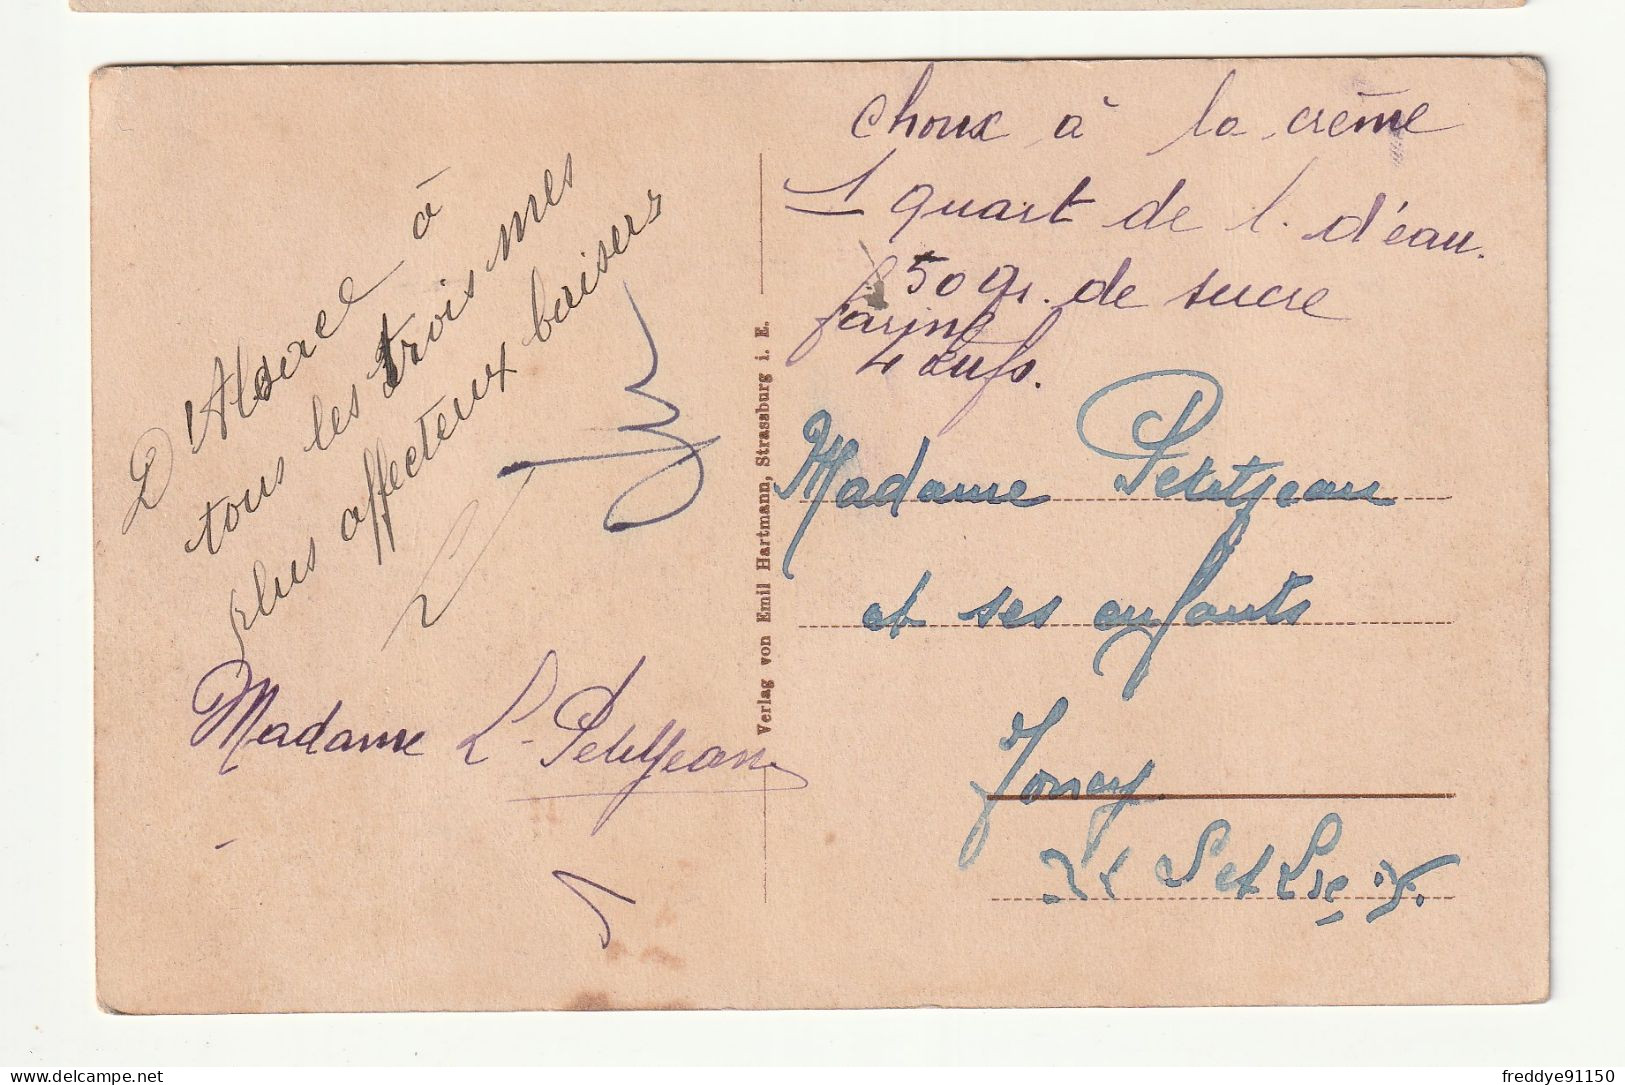 D'Alsace à
tous les trois mes
plus affectueux baisers
Madame L. Petitjean
1
Verlag von Emil Hartmann, Strassburg i. E.
choux à la crème
1 quart de l. d'eau.
50 gr. de sucre
farine
4 œufs.
Madame Petitjean
et ses enfants
Joncy
S et Lre
freddye91150